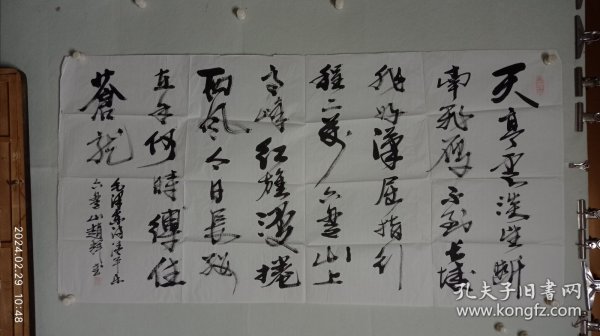 天高雲淡望断
南飛雁不到长城
非好漢屈指行
程二万六盘山上
高峰红旗漫捲
西风今日長缨
在手何時縛住
蒼龍
毛泽东词清平乐
六盘山趙
2024.02.29 10:48
孔夫子旧书网
www.kongfz.com